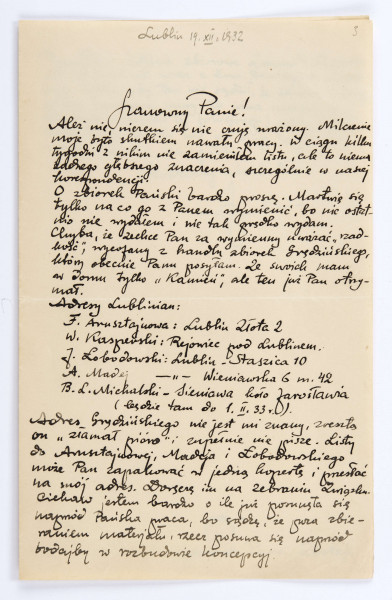 Lublin 19. XII. 1932
3
Szanowny Panie!
Ależ nie, niczem się nie czuję urażony. Milczenie
moje było skutkiem nawału pracy. W ciągu kilku
tygodni z nikim nie zamieniłem listu, ale to niema
żadnego głębszego znaczenia, szczególnie w naszej
korespondencji.
O zbiorek Pański bardzo proszę. Martwię się
tylko na co go z Panem wymienić, bo nic ostat-
nio nie wydałem i nie tak prędko wydam.
Chyba, że zechce Pan za wymienny uważać „rzad-
kość", wycofany z handlu zbiorek Grędzińskiego,
który obecnie Panu posyłam. Ze swoich mam
w domu tylko „Kamień", ale ten już Pan otrzy-
mał.
Adresy Lublinian:
F. Arnsztajnowa: Lublin Złota 2
W. Kasperski: Rejowiec pod Lublinem.
J. Łobodowski: Lublin – Staszica 10
A. Madej —„— Wieniawska 6 m. 42
B. L. Michalski – Sieniawa koło Jarosławia
(będzie tam do 1. II. 33 r.)
Adres Grędzińskiego nie jest mi znany, zresztą
on „złamał pióro" i zupełnie nie pisze. Listy
do Arnsztajnowej, Madeja i Łobodowskiego
może Pan zapakować w jedną kopertę i przesłać
na mój adres. Doręczę im na zebraniu Związku.
Ciekaw jestem bardzo o ile już posunęła się
naprzód Pańska praca, bo sądzę, że poza zbie-
raniem materjału, rzecz posuwa się naprzód
bodajby w rozbudowie koncepcyj.